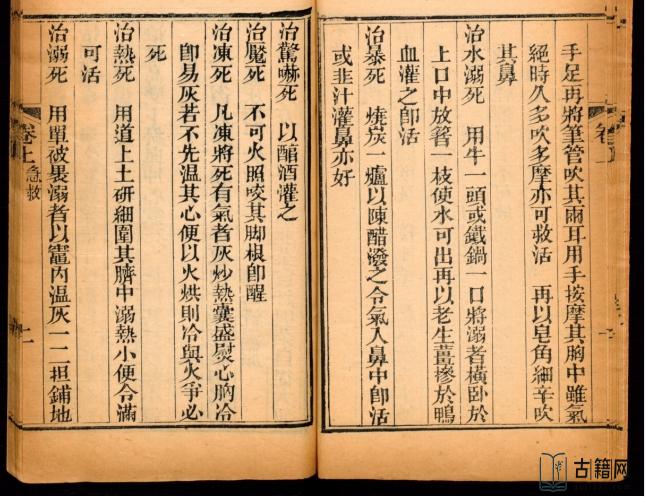 手足再將筆管吹其兩耳用手按摩其胸中雖氣
絕時久多吹多摩亦可救活　再以皂角細辛吹
其鼻
治水溺死　用牛一頭或鐵鍋一口將溺者橫卧於
上口中放箸一枝使水可出再以老生薑摻於鴨
血灌之卽活
治暴死　燒炭一爐以陳醋潑之令氣入鼻中卽活
或韭汁灌鼻亦好
卷上
治驚嚇死　以醅酒灌之
治魘死　不可火照咬其脚根卽醒
治凍死　凡凍將死有氣者灰炒熱囊盛熨心胸冷
卽易灰若不先温其心便以火烘則冷與火爭必
死
治熱死　用道上土研細圍其臍中溺熱小便令滿
可活
治溺死　用單被畏溺者以竈內温灰一二担鋪地
卷上 急救 二
古籍网